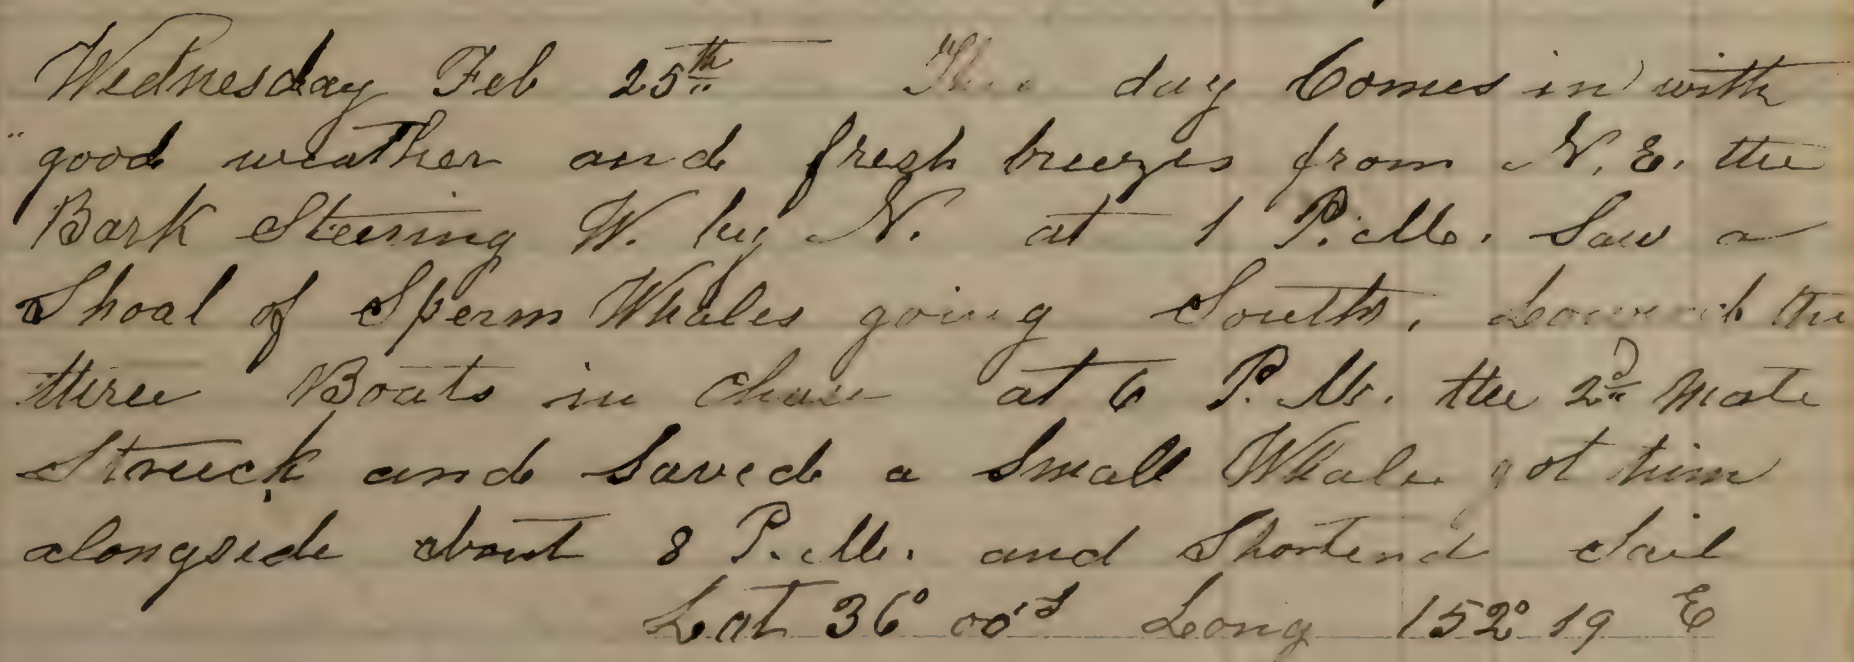 Wednesday Feb 25th This day Comes in with
good weather and fresh breezes from N. E. the
Bark Steering W. by N. at 1 P.M. Saw a
Shoal of Sperm Whales going South. Lowered the
three Boats in Chase at 6 P.M. the 2d Mate
Struck and Saved a Small Whale got him
alongside about 8 P.M. and Shortend Sail
Lat 36° 00' S Long 152° 19 E